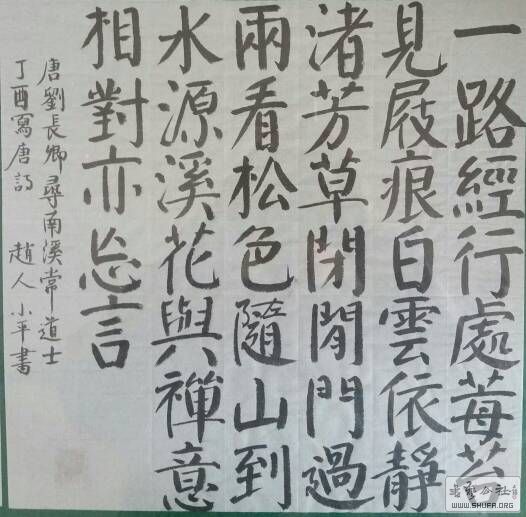 一路經行處莓苔
見屐痕白雲依靜
渚芳草閉閒門過
雨看松色隨山到
水源溪花與禪意
相對亦忘言
唐劉長卿尋南溪常道士
丁酉寫唐詩 趙人小平書
書藝公社
WWW.SHUFA.ORG